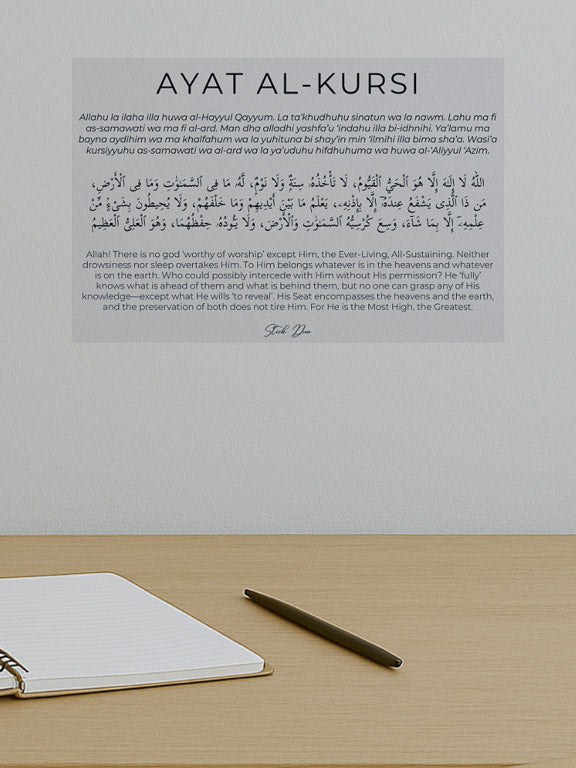 AYAT AL-KURSI
Allahu la ilaha illa huwa al-Hayyul Qayyum. La ta'khudhuhu sinatun wa la nawm. Lahu ma fi
as-samawati wa ma fi al-ard. Man dha alladhi yashfa'u 'indahu illa bi-idhnihi. Ya'lamu ma
bayna aydihim wa ma khalfahum wa la yuhituna bi shay'in min 'ilmihi illa bima sha'a. Wasi'a
kursiyyuhu as-samawati wa al-ard wa la ya'uduhu hifdhuhuma wa huwa al-'Aliyyul 'Azim.
اللَّهُ لَا إِلَٰهَ إِلَّا هُوَ الْحَيُّ الْقَيُّومُ، لَا تَأْخُذُهُ سِنَةٌ وَلَا نَوْمٌ، لَّهُ مَا فِي السَّمَٰوَٰتِ وَمَا فِي الْأَرْضِ،
مَن ذَا الَّذِي يَشْفَعُ عِندَهُ إِلَّا بِإِذْنِهِ، يَعْلَمُ مَا بَيْنَ أَيْدِيهِمْ وَمَا خَلْفَهُمْ، وَلَا يُحِيطُونَ بِشَيْءٍ مِّنْ
عِلْمِهِ إِلَّا بِمَا شَاءَ، وَسِعَ كُرْسِيُّهُ السَّمَٰوَٰتِ وَالْأَرْضَ، وَلَا يَئُودُهُ حِفْظُهُمَا، وَهُوَ الْعَلِيُّ الْعَظِيمُ
Allah! There is no god 'worthy of worship' except Him, the Ever-Living, All-Sustaining. Neither
drowsiness nor sleep overtakes Him. To Him belongs whatever is in the heavens and whatever
is on the earth. Who could possibly intercede with Him without His permission? He 'fully'
knows what is ahead of them and what is behind them, but no one can grasp any of His
knowledge—except what He wills 'to reveal'. His Seat encompasses the heavens and the earth,
and the preservation of both does not tire Him. For He is the Most High, the Greatest.
Stick Dua